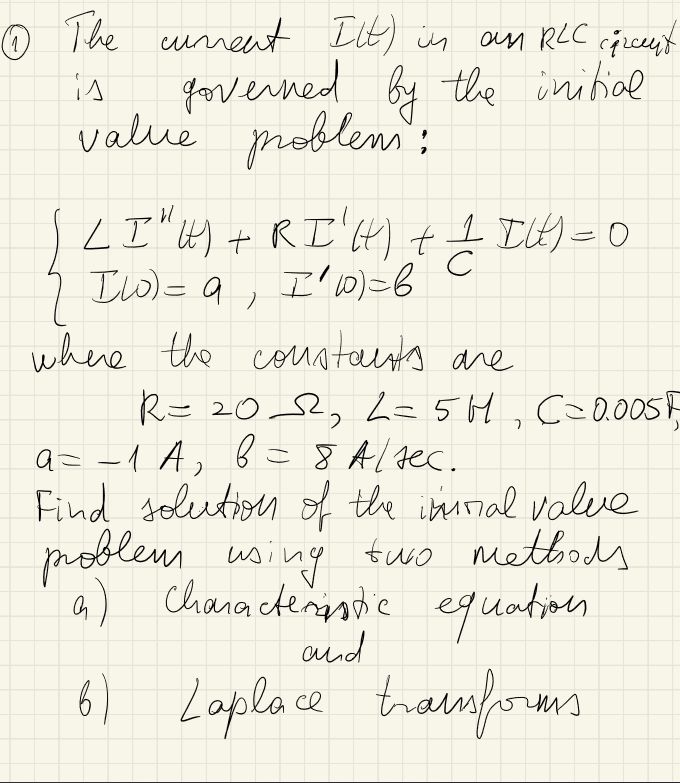 ① The current I(t) in an RLC circuit
is governed by the initial
value problem:
{ L I''(t) + R I'(t) + 1/C I(t) = 0
I(0) = a , I'(0) = b
where the constants are
R = 20 Ω, L = 5 H, C = 0.005 F,
a = -1 A, b = 8 A/sec.
Find solution of the initial value
problem using two methods
a) Characteristic equation
and
b) Laplace transforms